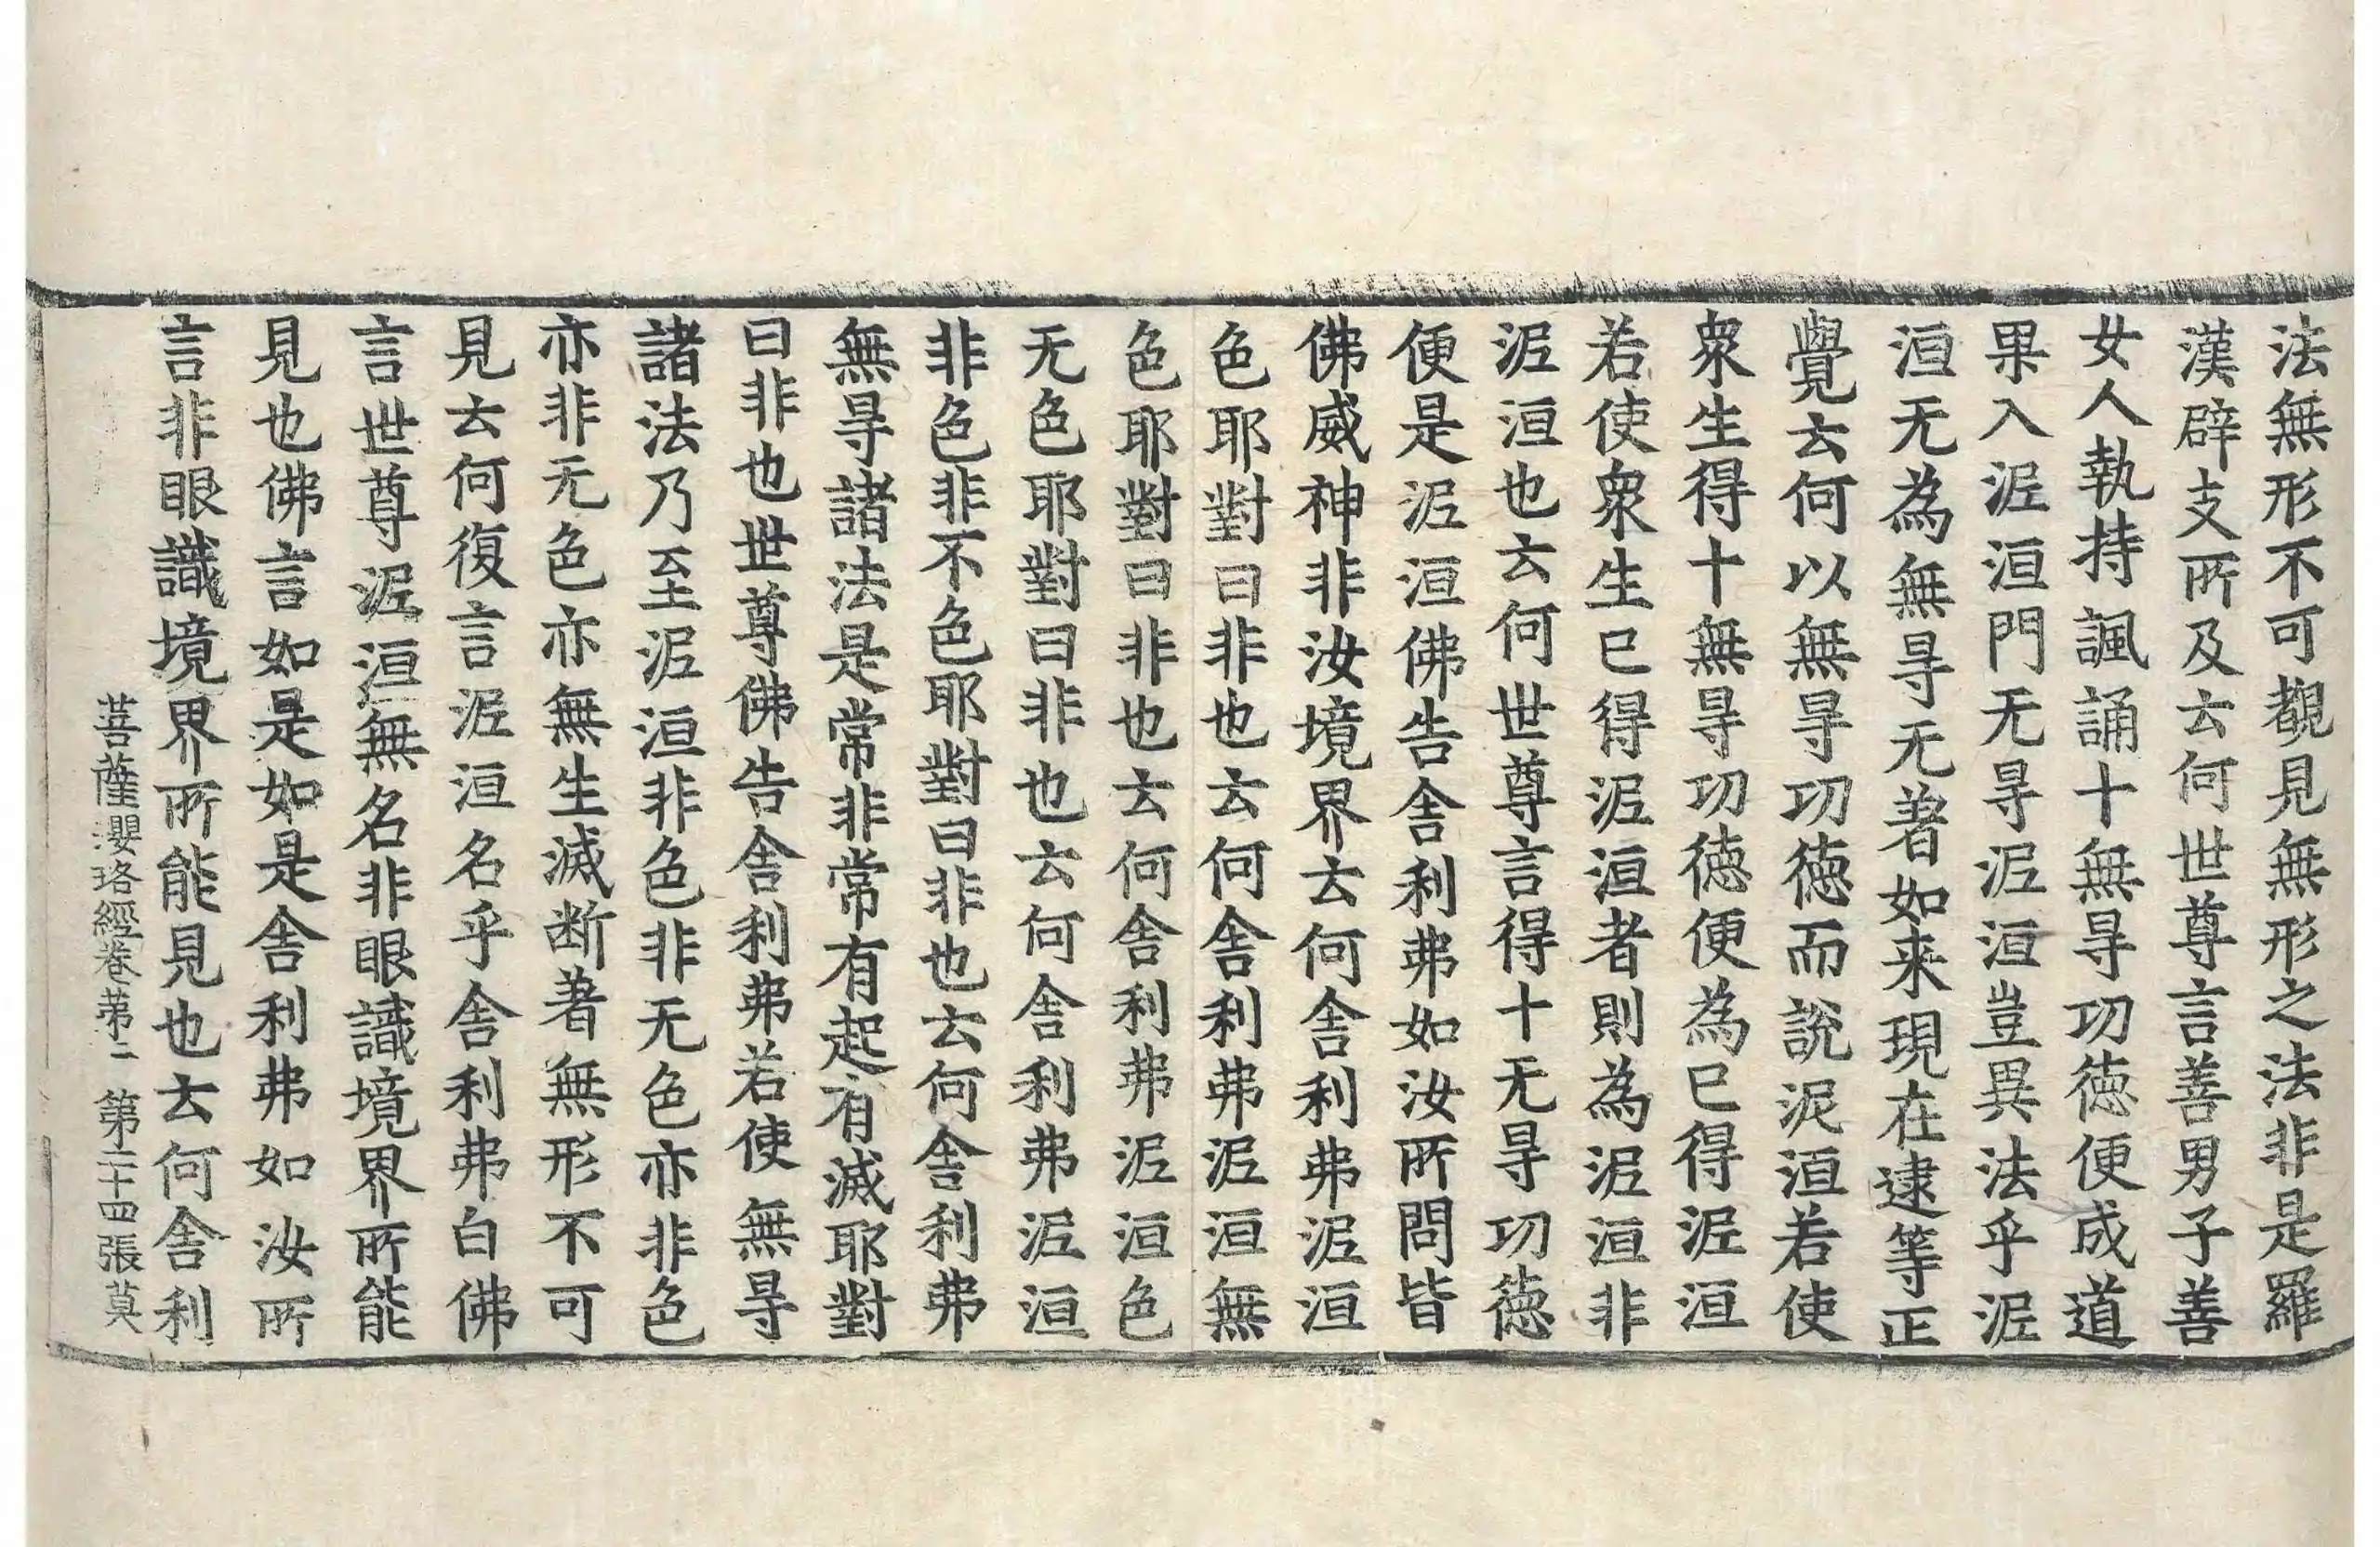 法無形不可覩見無形之法非是羅
漢辟支所及云何世尊言善男子善
女人執持諷誦十無㝵功德便成道
果入泥洹門无㝵泥洹豈異法乎泥
洹无為無㝵无著如来現在逮等正
覺云何以無㝵功德而說泥洹若使
衆生得十無㝵功德便為已得泥洹
若使衆生已得泥洹者則為泥洹非
泥洹也云何世尊言得十无㝵功德
便是泥洹佛告舍利弗如汝所問皆
佛威神非汝境界云何舍利弗泥洹
色耶對曰非也云何舍利弗泥洹無
色耶對曰非也云何舍利弗泥洹色
无色耶對曰非也云何舍利弗泥洹
非色非不色耶對曰非也云何舍利弗
無㝵諸法是常非常有起有滅耶對
曰非也世尊佛告舍利弗若使無㝵
諸法乃至泥洹非色非无色亦非色
亦非无色亦無生滅断著無形不可
見云何復言泥洹名乎舍利弗白佛
言世尊泥洹無名非眼識境界所能
見也佛言如是如是舍利弗如汝所
言非眼識境界所能見也云何舍利
菩薩瓔珞經卷苐二 第二十四張莫